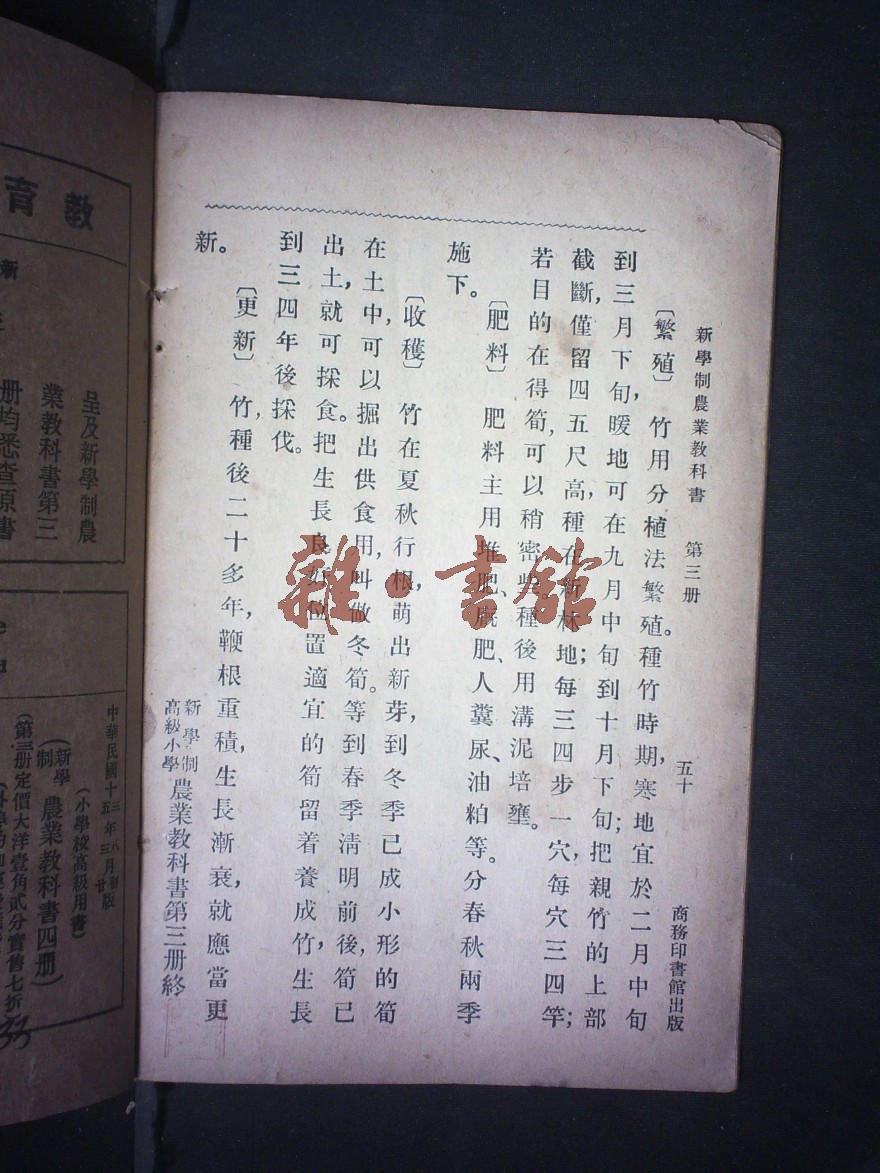 新學制農業教科書　第三册　五十　商務印書館出版
〔繁殖〕　竹用分植法繁殖。種竹時期，寒地宜於二月中旬
到三月下旬，暖地可在九月中旬到十月下旬；把親竹的上部
截斷，僅留四五尺高，種在新林地；每三四步一穴，每穴三四竿；
若目的在得筍，可以稍密些。種後用溝泥培壅。
〔肥料〕　肥料主用堆肥、廐肥、人糞尿、油粕等。分春秋兩季
施下。
〔收穫〕　竹在夏秋行根，萌出新芽，到冬季已成小形的筍
在土中，可以掘出供食用，叫做冬筍。等到春季淸明前後，筍已
出土，就可採食。把生長良好位置適宜的筍留着養成竹，生長
到三四年後採伐。
〔更新〕　竹，種後二十多年，鞭根重積，生長漸衰，就應當更
新。
新學制高級小學農業教科書第三册終
雜·書館
教育
新
呈及新學制農
業教科書第三
册均悉查原書
中華民國十三年八月初版
十五年三月廿
（小學校高級用書）
（新學制農業教科書四册）
（第三册定價大洋壹角貳分實售七折
33